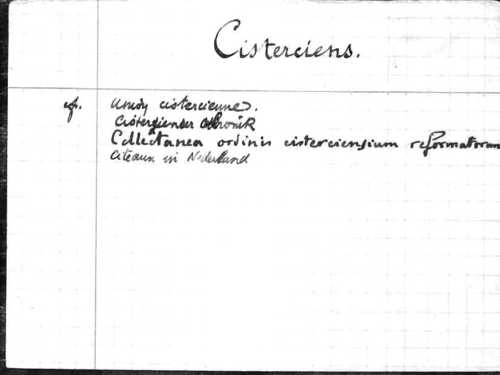 Cisterciens.
cfr. Union cistercienne.
Cistercienser Chronik
Collectanea ordinis cisterciensium reformatorum
Citeaux in Nederland